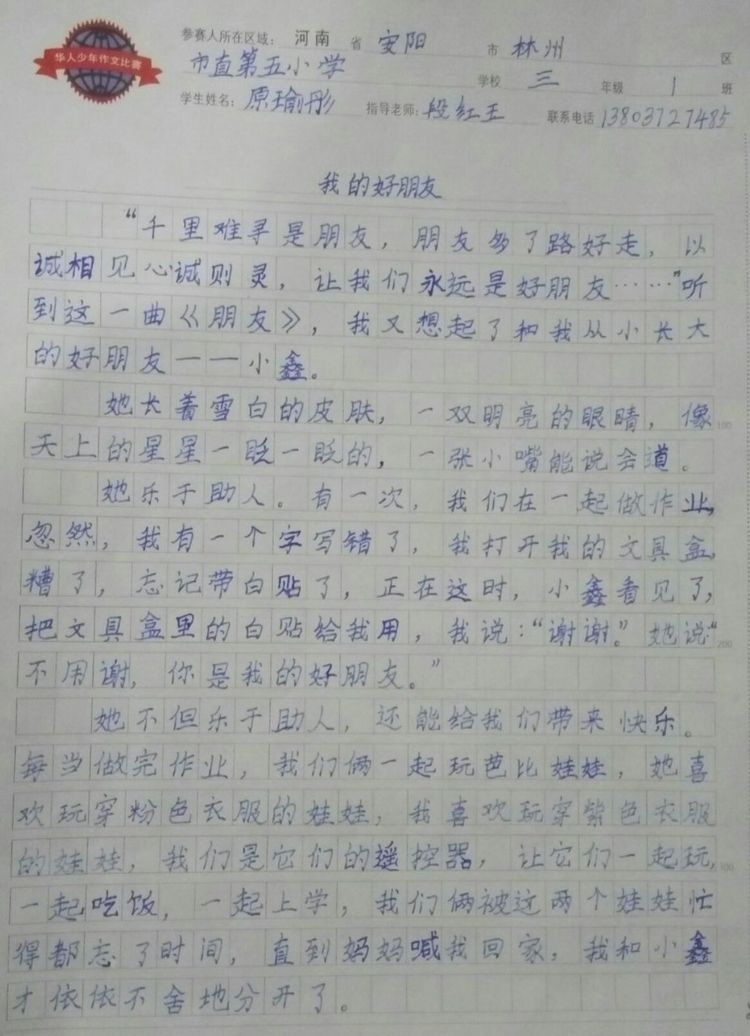 华人少年作文比赛
参赛人所在区域： 河南 省 安阳 市 林州 区
市直第五小学 学校 三 年级 1 班
学生姓名：原瑜彤 指导老师：段红玉 联系电话 13803727485
我的好朋友
“千里难寻是朋友，朋友多了路好走，以
诚相见心诚则灵，让我们永远是好朋友……”听
到这一曲《朋友》，我又想起了和我从小长大
的好朋友——小鑫。
她长着雪白的皮肤，一双明亮的眼睛，像
天上的星星一眨一眨的，一张小嘴能说会道。
100
她乐于助人。有一次，我们在一起做作业，
忽然，我有一个字写错了，我打开我的文具盒，
糟了，忘记带白贴了，正在这时，小鑫看见了，
把文具盒里的白贴给我用，我说：“谢谢。”她说“
200
不用谢，你是我的好朋友。”
她不但乐于助人，还能给我们带来快乐。
每当做完作业，我们俩一起玩芭比娃娃，她喜
欢玩穿粉色衣服的娃娃，我喜欢玩穿紫色衣服
的娃娃，我们是它们的遥控器，让它们一起玩，
300
一起吃饭，一起上学，我们俩被这两个娃娃忙
得都忘了时间，直到妈妈喊我回家，我和小鑫
才依依不舍地分开了。